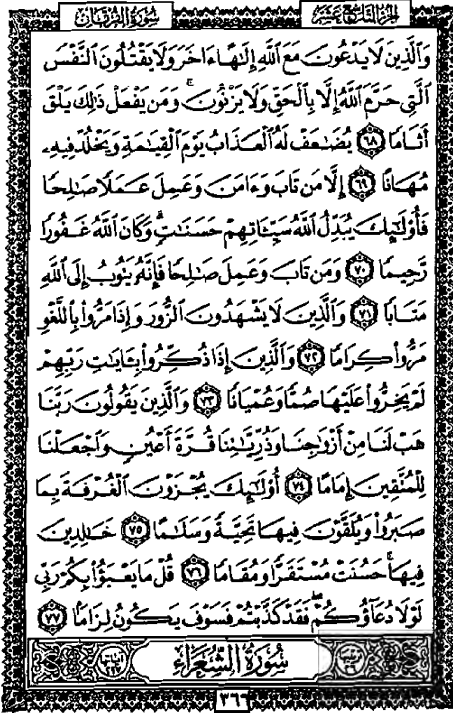 الجزء التاسع عشر
سورة الفرقان
وَٱلَّذِينَ لَا يَدْعُونَ مَعَ ٱللَّهِ إِلَٰهًا ءَاخَرَ وَلَا يَقْتُلُونَ ٱلنَّفْسَ
ٱلَّتِي حَرَّمَ ٱللَّهُ إِلَّا بِٱلْحَقِّ وَلَا يَزْنُونَ ۚ وَمَن يَفْعَلْ ذَٰلِكَ يَلْقَ
أَثَامًا ٦٨ يُضَٰعَفْ لَهُ ٱلْعَذَابُ يَوْمَ ٱلْقِيَٰمَةِ وَيَخْلُدْ فِيهِۦ
مُهَانًا ٦٩ إِلَّا مَن تَابَ وَءَامَنَ وَعَمِلَ عَمَلًا صَٰلِحًا
فَأُو۟لَٰٓئِكَ يُبَدِّلُ ٱللَّهُ سَيِّـَٔاتِهِمْ حَسَنَٰتٍ ۗ وَكَانَ ٱللَّهُ غَفُورًا
رَّحِيمًا ٧٠ وَمَن تَابَ وَعَمِلَ صَٰلِحًا فَإِنَّهُۥ يَتُوبُ إِلَى ٱللَّهِ
مَتَابًا ٧١ وَٱلَّذِينَ لَا يَشْهَدُونَ ٱلزُّورَ وَإِذَا مَرُّوا۟ بِٱللَّغْوِ
مَرُّوا۟ كِرَامًا ٧٢ وَٱلَّذِينَ إِذَا ذُكِّرُوا۟ بِـَٔايَٰتِ رَبِّهِمْ
لَمْ يَخِرُّوا۟ عَلَيْهَا صُمًّا وَعُمْيَانًا ٧٣ وَٱلَّذِينَ يَقُولُونَ رَبَّنَا
هَبْ لَنَا مِنْ أَزْوَٰجِنَا وَذُرِّيَّٰتِنَا قُرَّةَ أَعْيُنٍ وَٱجْعَلْنَا
لِلْمُتَّقِينَ إِمَامًا ٧٤ أُو۟لَٰٓئِكَ يُجْزَوْنَ ٱلْغُرْفَةَ بِمَا
صَبَرُوا۟ وَيُلَقَّوْنَ فِيهَا تَحِيَّةً وَسَلَٰمًا ٧٥ خَٰلِدِينَ
فِيهَا ۚ حَسُنَتْ مُسْتَقَرًّا وَمُقَامًا ٧٦ قُلْ مَا يَعْبَؤُا۟ بِكُمْ رَبِّي
لَوْلَا دُعَآؤُكُمْ ۖ فَقَدْ كَذَّبْتُمْ فَسَوْفَ يَكُونُ لِزَامًا ٧٧
سُورَةُ الشُّعَرَاءِ
٣٦٦